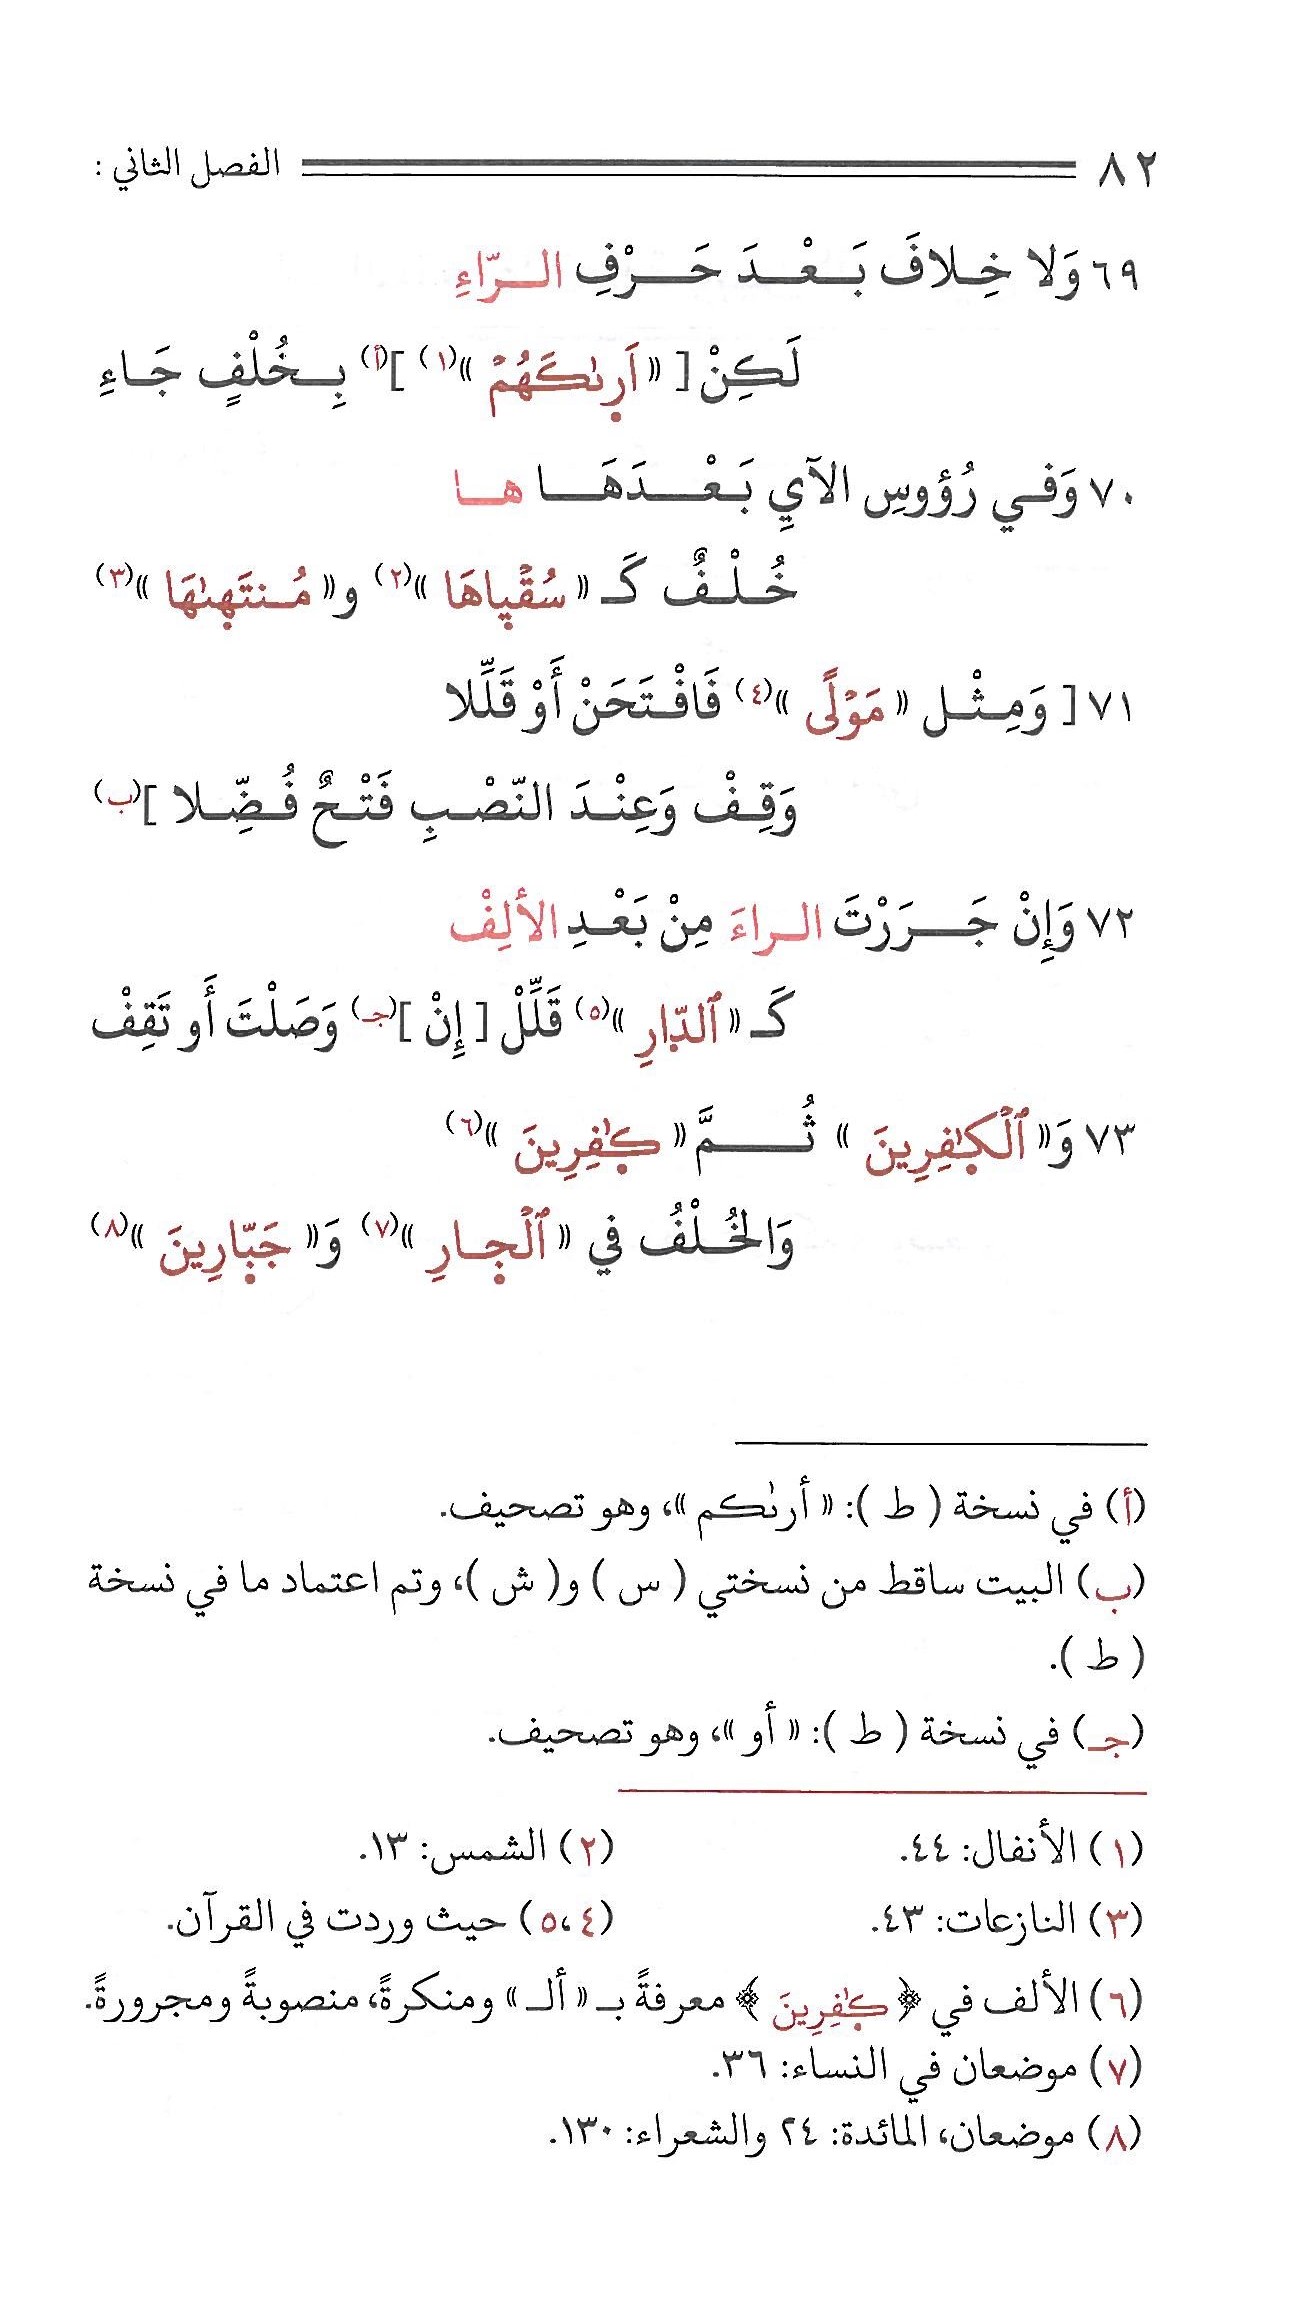 ٨٢ الفصل الثاني :
٦٩ وَلا خِلافَ بَعْدَ حَرْفِ الرّاءِ
لَكِنْ [ « أَرىٰكَهُمْ »(١) ](أ) بِخُلْفٍ جَاءِ
٧٠ وَفي رُؤوسِ الآيِ بَعْدَهَا ها
خُلْفٌ كَـ « سُقْيٰاهَا »(٢) و« مُنتَهىٰهَا »(٣)
٧١ [ وَمِثْل « مَوْلًى »(٤) فَافْتَحَنْ أَوْ قَلِّلا
وَقِفْ وَعِنْدَ النّصْبِ فَتْحٌ فُضِّلا ](ب)
٧٢ وَإِنْ جَرَرْتَ الراءَ مِنْ بَعْدِ الألِفْ
كَـ « ٱلدّارِ »(٥) قَلِّلْ [ إِنْ ](جـ) وَصَلْتَ أَو تَقِفْ
٧٣ وَ« ٱلْكٰفِرِينَ » ثُمَّ « كٰفِرِينَ »(٦)
وَالخُلْفُ في « ٱلْجارِ »(٧) وَ« جَبّارِينَ »(٨)
(أ) في نسخة ( ط ): « أرىٰكم »، وهو تصحيف.
(ب) البيت ساقط من نسختي ( س ) و( ش )، وتم اعتماد ما في نسخة
( ط ).
(جـ) في نسخة ( ط ): « أو »، وهو تصحيف.
(١) الأنفال: ٤٤. (٢) الشمس: ١٣.
(٣) النازعات: ٤٣. (٤،٥) حيث وردت في القرآن.
(٦) الألف في ﴿ كٰفِرِينَ ﴾ معرفةً بـ « ألـ » ومنكرةً، منصوبةً ومجرورةً.
(٧) موضعان في النساء: ٣٦.
(٨) موضعان، المائدة: ٢٤ والشعراء: ١٣٠.